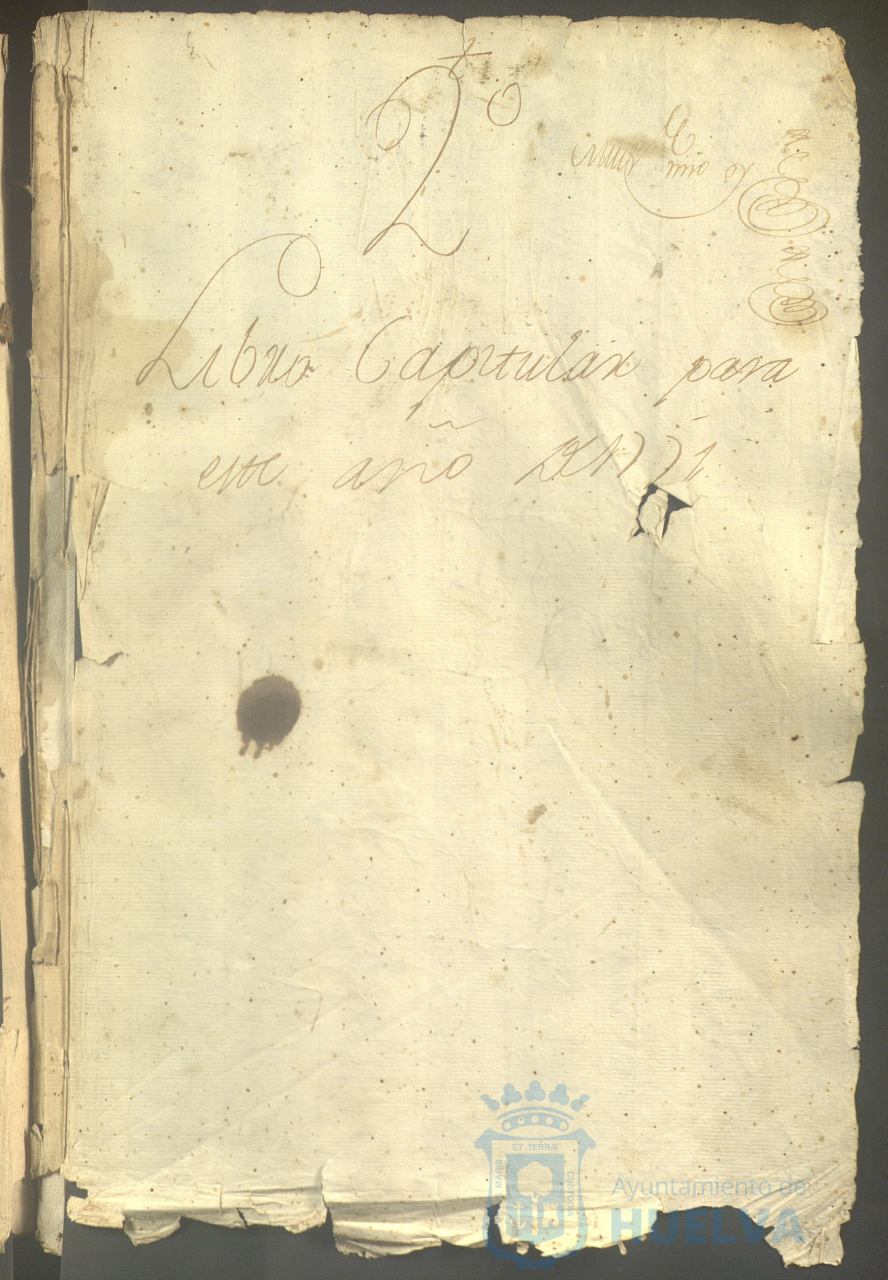 2º
Muy
mio
Libro Capitular para
este año de 1771
ET TERRÆ
Ayuntamiento de
HUELVA